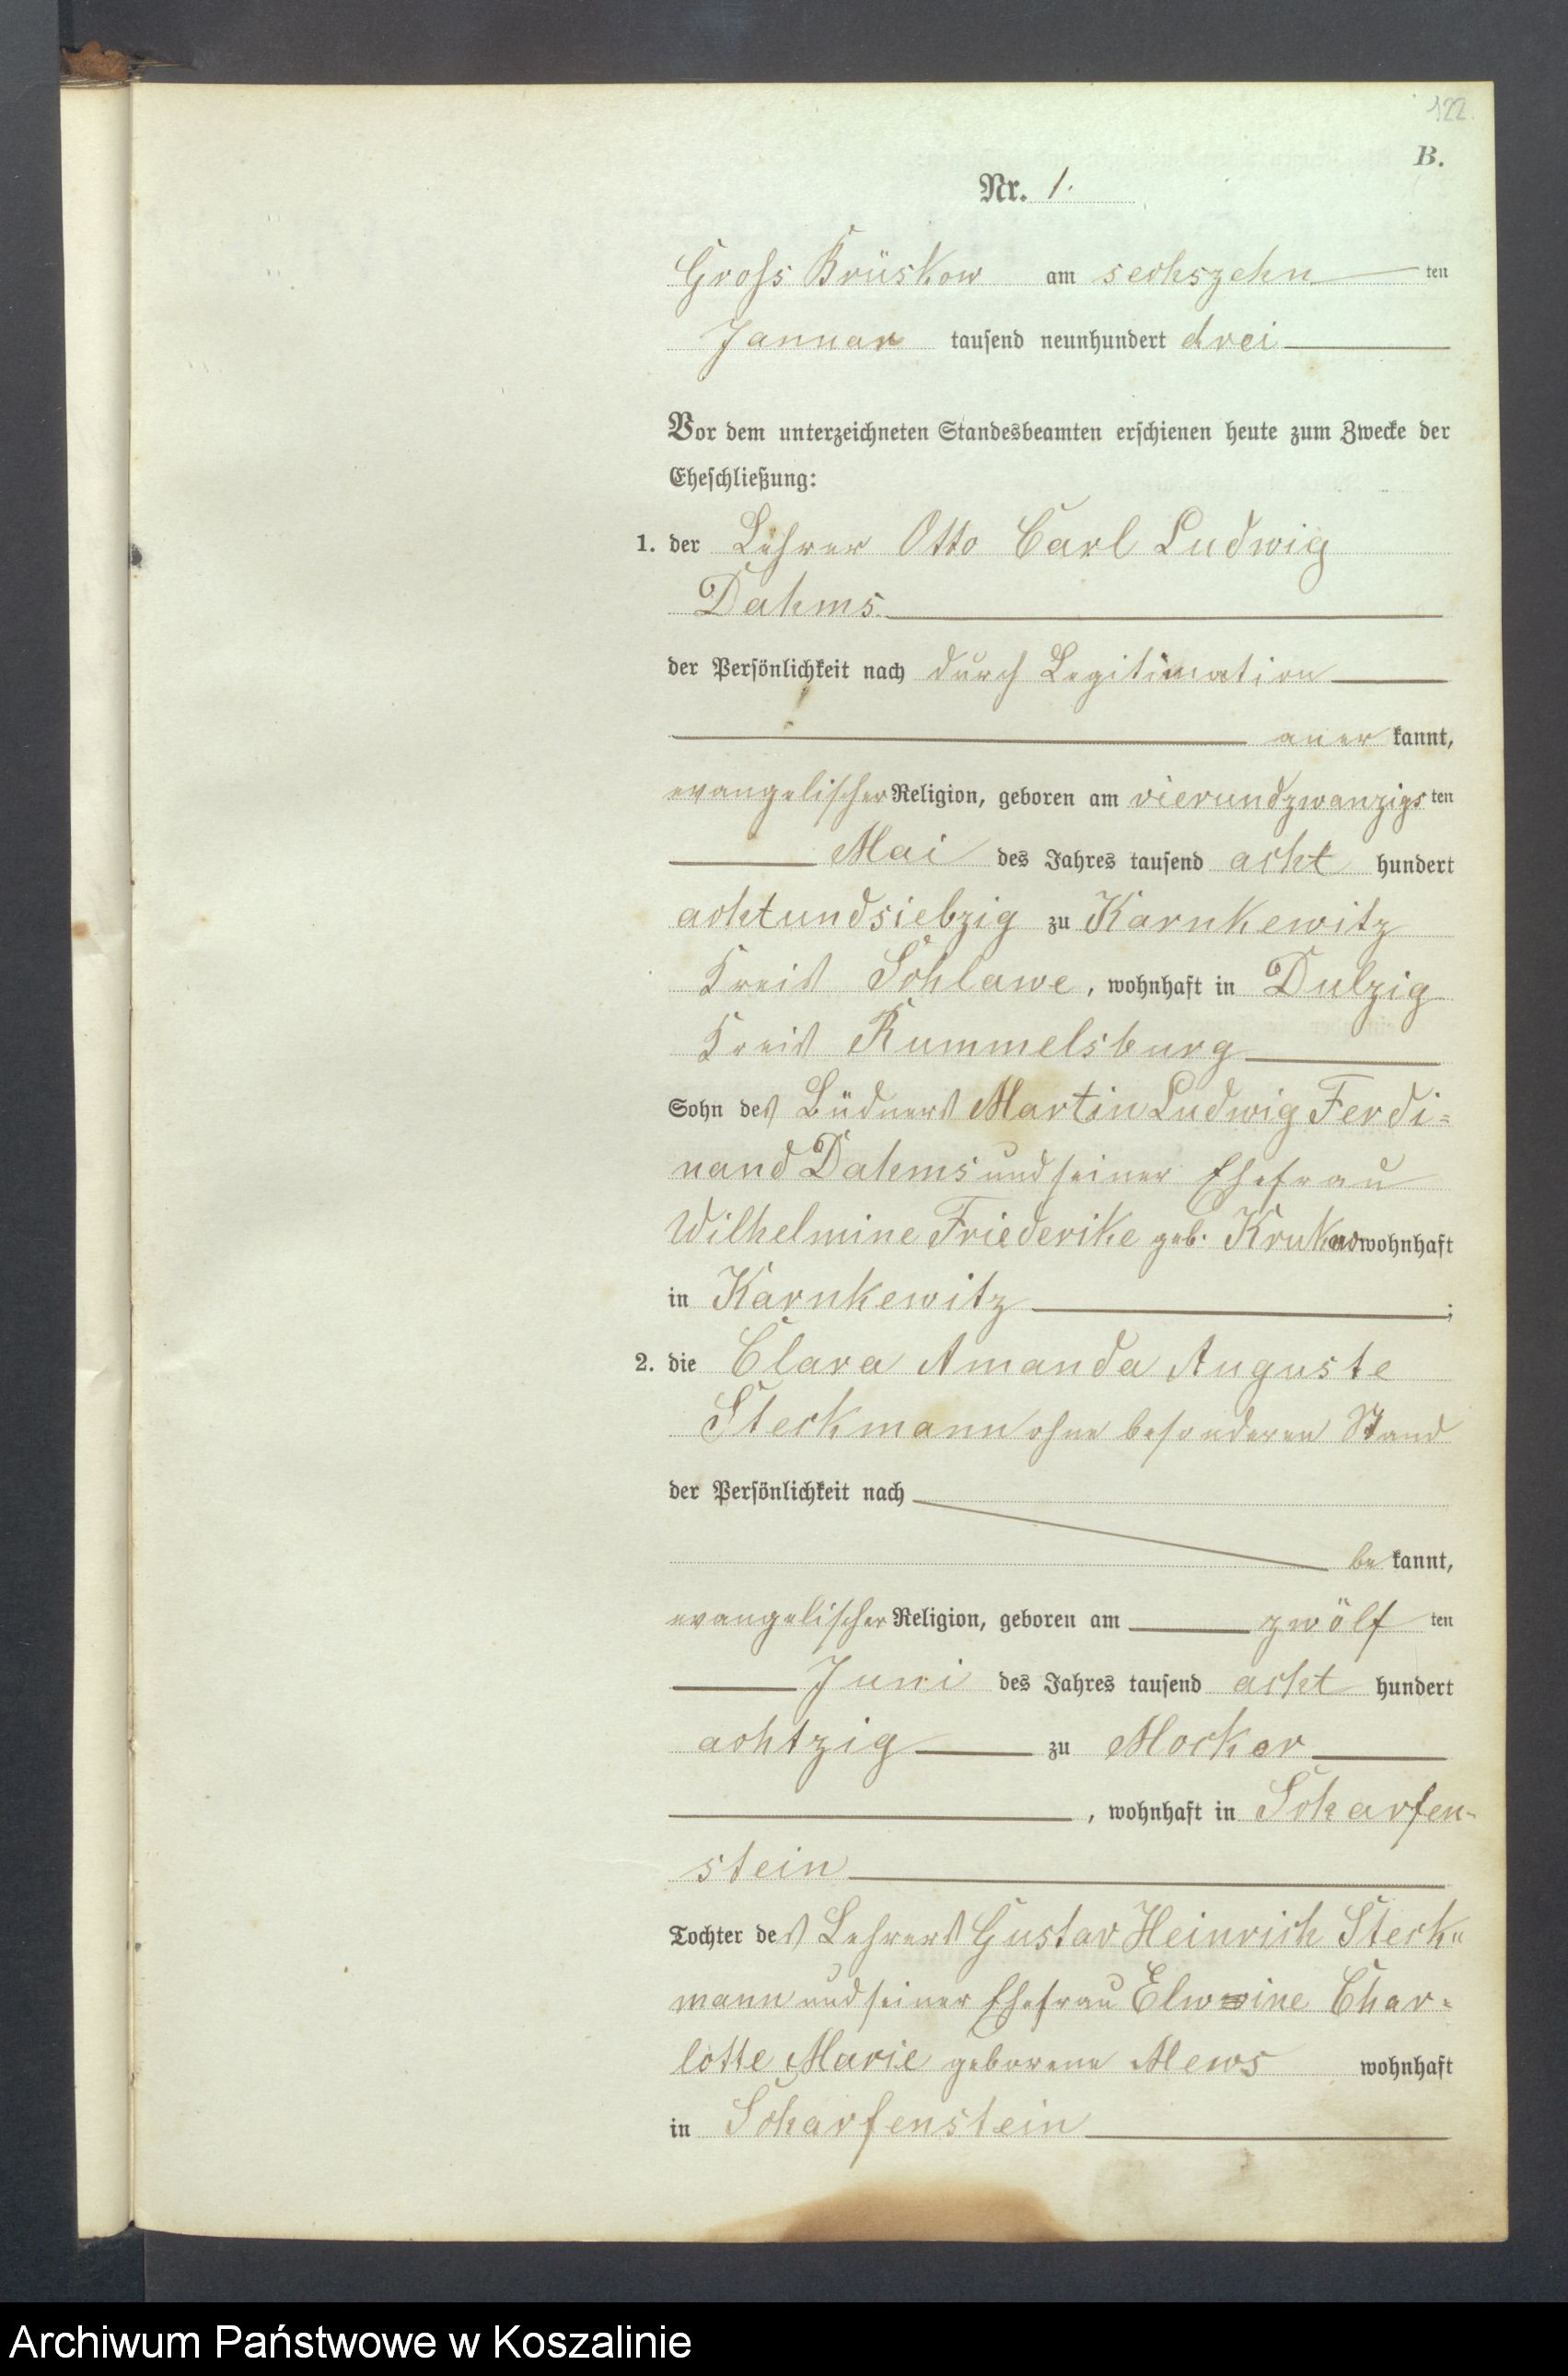 122
B.
Nr. 1.
Gross Brüskow am sechszehn ten
Januar tausend neunhundert drei
Vor dem unterzeichneten Standesbeamten erschienen heute zum Zwecke der
Eheschließung:
1. der Lehrer Otto Carl Ludwig
Dahms
der Persönlichkeit nach durch Legitimation
aner kannt,
evangelischer Religion, geboren am vierundzwanzigs ten
Mai des Jahres tausend acht hundert
achtundsiebzig zu Karnkewitz
Kreis Schlawe, wohnhaft in Dulzig
Kreis Rummelsburg
Sohn des Büdners Martin Ludwig Ferdi=
nand Dahms und seiner Ehefrau
Wilhelmine Friederike geb. wohnhaft
in Karnkewitz ;
2. die Clara Amanda Auguste
Steckmann ohne besonderen Stand
der Persönlichkeit nach
be kannt,
evangelischer Religion, geboren am zwölf ten
Juni des Jahres tausend acht hundert
achtzig zu Mocker
, wohnhaft in Scharfen-
stein
Tochter des Lehrers Gustav Heinrich Steck=
mann und seiner Ehefrau Elwine Char=
lotte Marie geborene Mews wohnhaft
in Scharfenstein
Archiwum Państwowe w Koszalinie